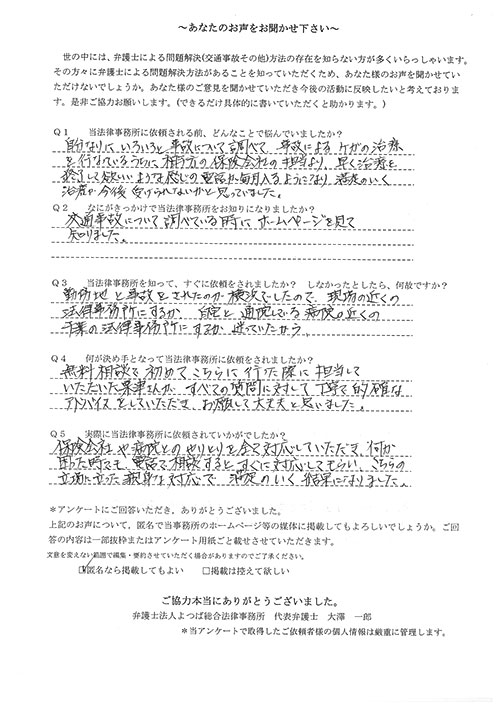 ～あなたのお声をお聞かせ下さい～
世の中には、弁護士による問題解決(交通事故その他)方法の存在を知らない方が多くいらっしゃいます。
その方々に弁護士による問題解決方法があることを知っていただくため、あなた様のお声を聞かせてい
ただけないでしょうか。あなた様のご意見を聞かせていただき今後の活動に反映したいと考えておりま
す。是非ご協力お願いします。(できるだけ具体的に書いていただくと助かります。)
Q1 当法律事務所に依頼される前、どんなことで悩んでいましたか?
自分なりに、いろいろと事故について調べて、事故によるケガの治療
を行なっているうちに、相手方の保険会社の担当より、早く治療を
終了して欲しいような感じの電話が毎月入るようになり、満足のいく
治療が今後受けられないかと思っていました。
Q2 なにがきっかけで当法律事務所をお知りになりましたか?
交通事故について調べている時に、ホームページを見て
知りました。
Q3 当法律事務所を知って、すぐに依頼をされましたか? しなかったとしたら、何故ですか?
勤務地と事故をされたのが横浜でしたので、現場の近くの
法律事務所にするか、自宅と通院している病院の近くの
千葉の法律事務所にするか、迷っていたから。
Q4 何が決め手となって当法律事務所に依頼をされましたか?
無料相談で初めてこちらに行った際に担当して
いただいた さんが、すべての質問に対して丁寧で的確な
アドバイスをしていただき、お願いして大丈夫と思いました。
Q5 実際に当法律事務所に依頼されていかがでしたか?
保険会社や病院とのやりとりを全て対応していただき、何か
困った時でも、電話で相談するとすぐに対応してもらい、こちらの
立場に立った親身な対応で、満足のいく結果になりました。
*アンケートにご回答いただき、ありがとうございました。
上記のお声について、匿名で当事務所のホームページ等の媒体に掲載してもよろしいでしょうか。ご回
答の内容は一部抜粋またはアンケート用紙ごと載せさせていただきます。
文意を変えない範囲で編集・要約させていただく場合がありますのでご了承ください。
☑匿名なら掲載してもよい □掲載は控えて欲しい
ご協力本当にありがとうございました。
弁護士法人よつば総合法律事務所 代表弁護士 大澤 一郎
*当アンケートで取得したご依頼者様の個人情報は厳重に管理します。